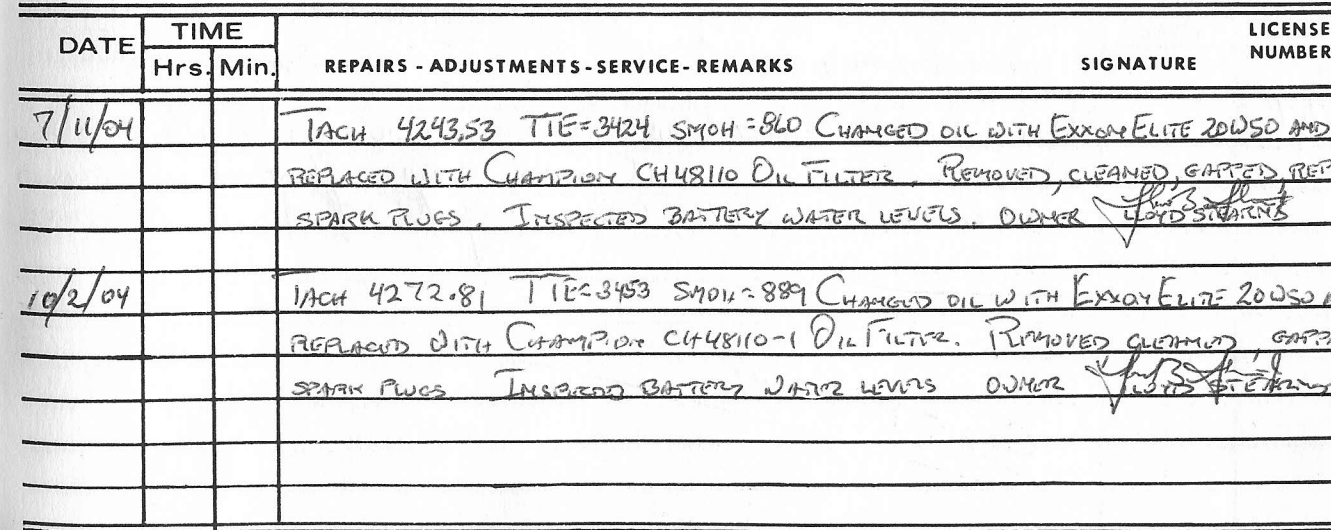 DATE TIME LICENSE
Hrs. Min. REPAIRS - ADJUSTMENTS - SERVICE - REMARKS SIGNATURE NUMBER
7/11/04 TACH 4243.53 TTE=3424 SMOH=860 CHANGED OIL WITH EXXON ELITE 20W50 AND
REPLACED WITH CHAMPION CH48110 OIL FILTER. REMOVED, CLEANED, GAPPED, REP
SPARK PLUGS. INSPECTED BATTERY WATER LEVELS. OWNER LLOYD STEARNS
10/2/04 TACH 4272.81 TTE=3453 SMOH=889 CHANGED OIL WITH EXXON ELITE 20W50
REPLACED WITH CHAMPION CH48110-1 OIL FILTER. REMOVED CLEANED, GAPP
SPARK PLUGS INSPECTED BATTERY WATER LEVELS OWNER LLOYD STEARNS